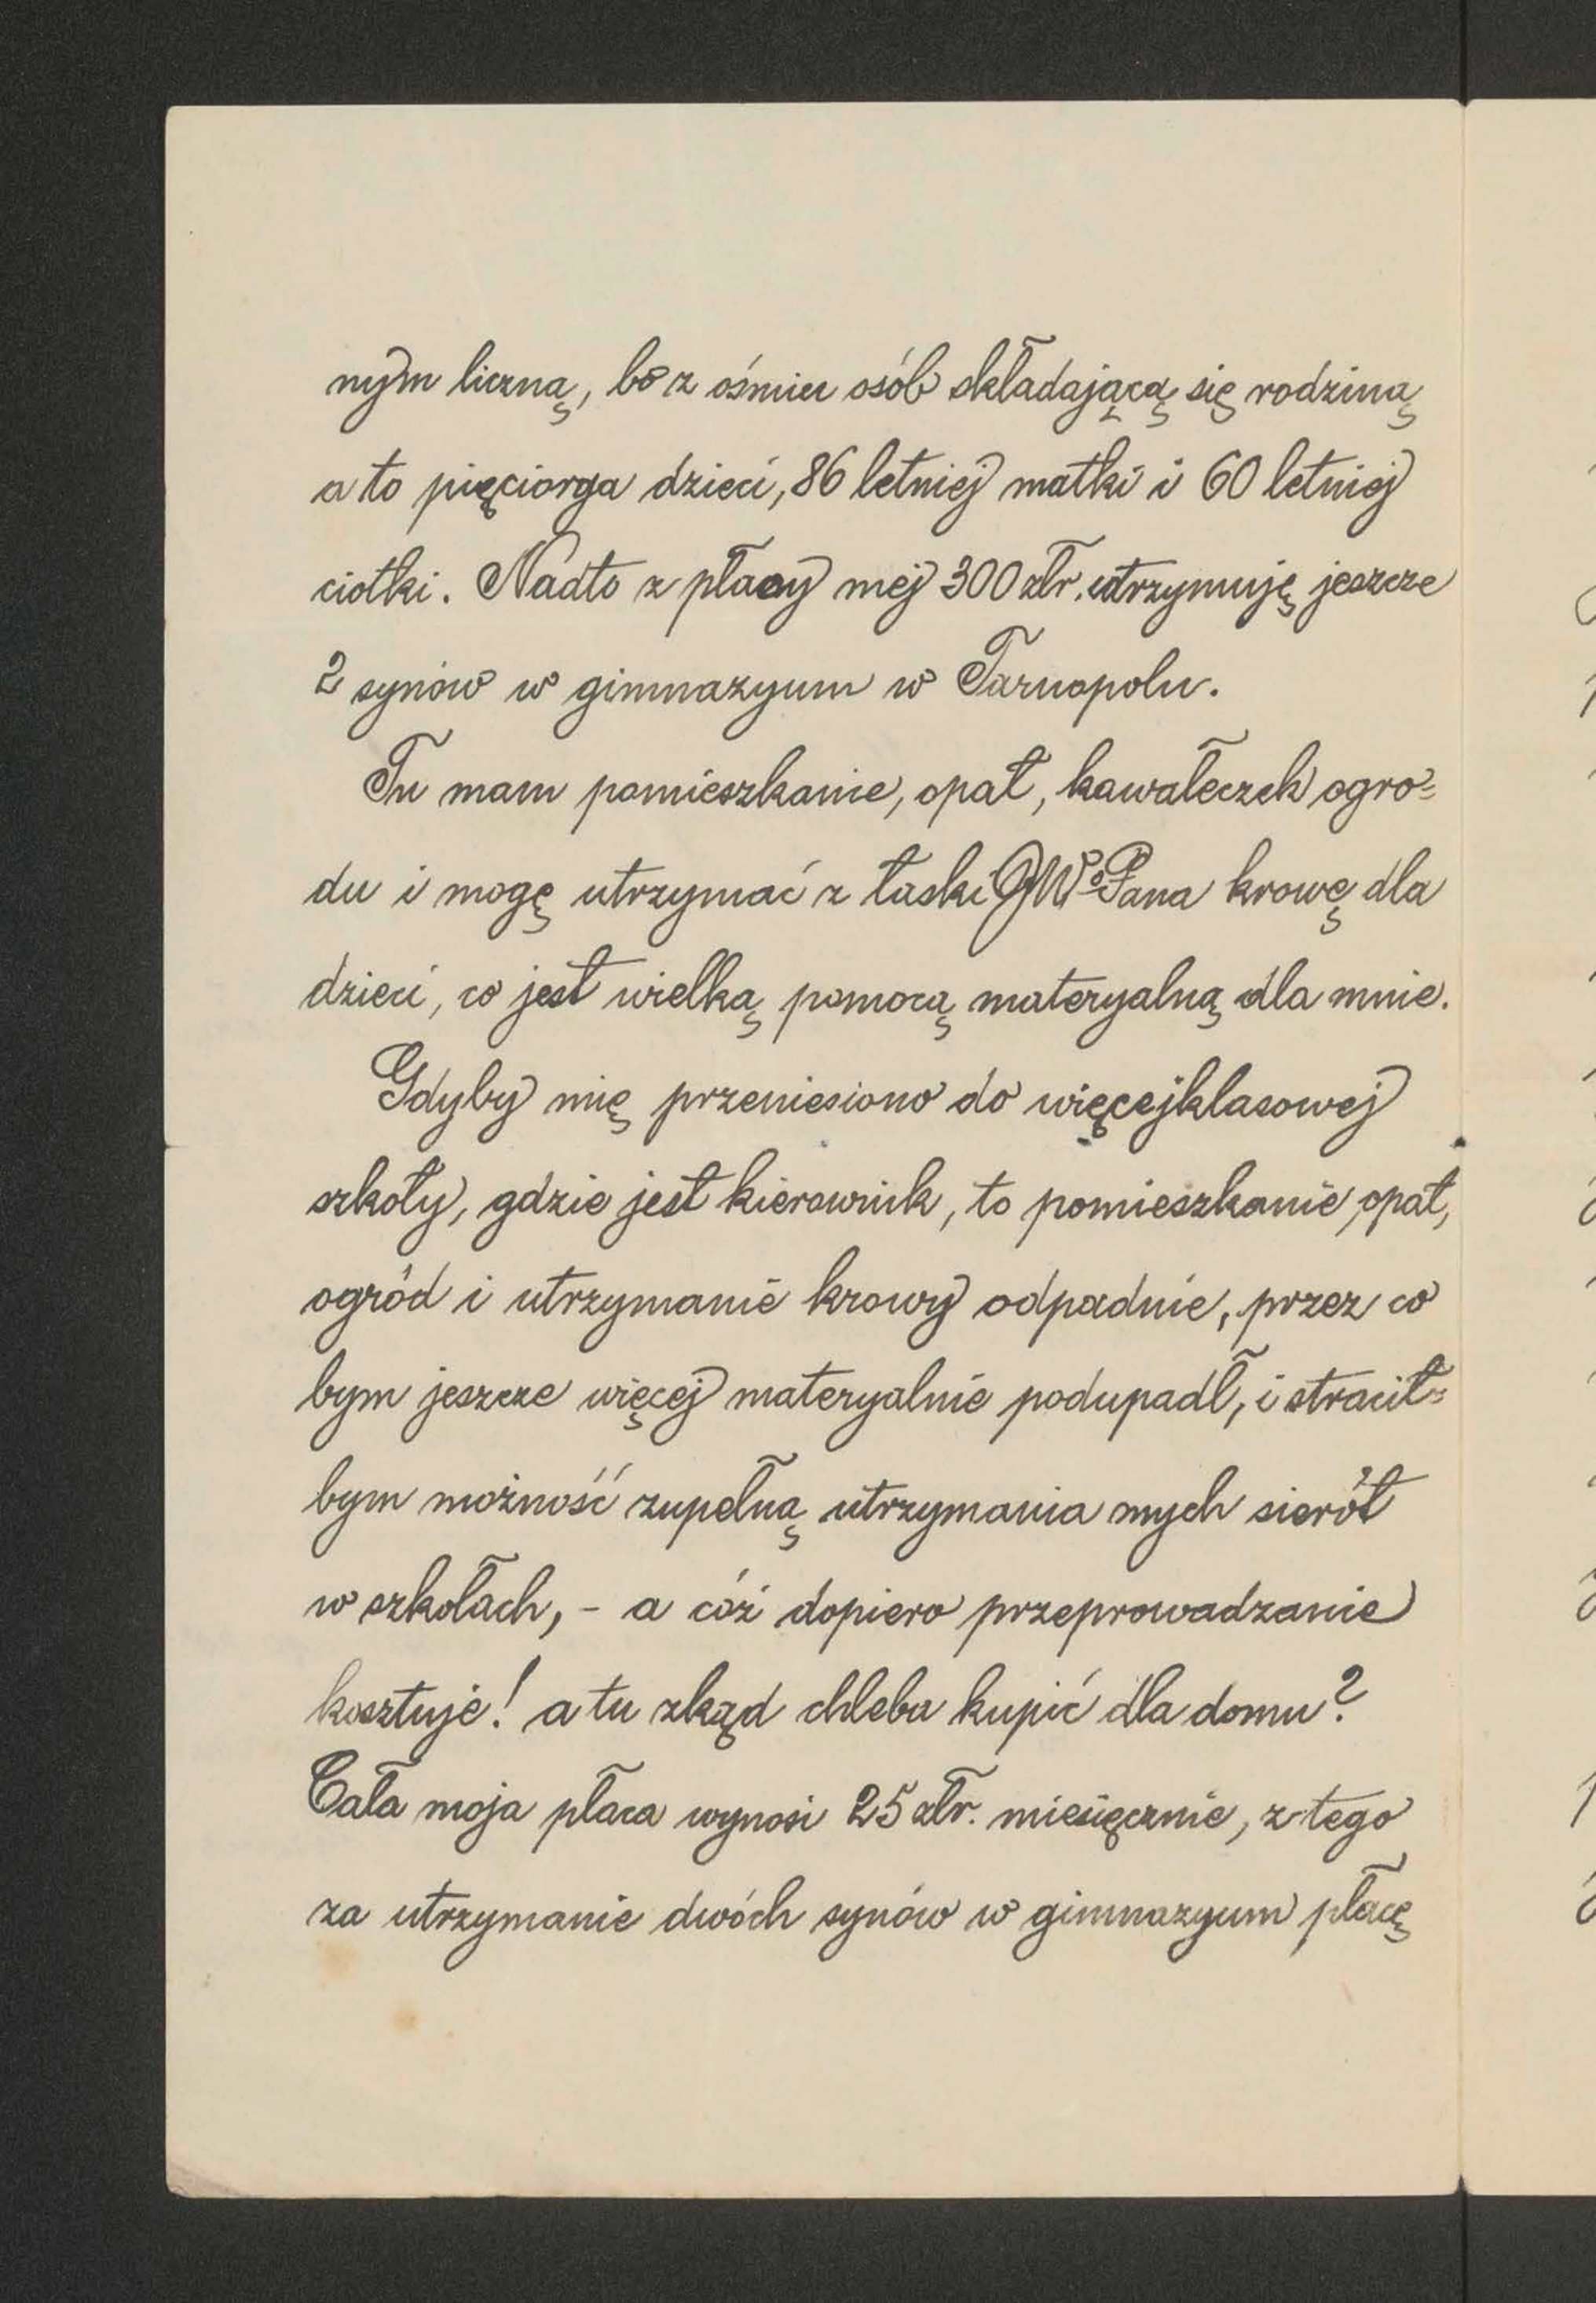 nym liczną, bo z ośmiu osób składającą się rodziną
a to pięciorga dzieci, 86 letniej matki i 60 letniej
ciotki. Nadto z płacy mej 300 złr. utrzymuję jeszcze
2 synów w gimnazyum w Tarnopolu.
Tu mam pomieszkanie, opał, kawałeczek ogro=
du i mogę utrzymać z łaski JWP. Pana krowę dla
dzieci, co jest wielką pomocą materyalną dla mnie.
Gdyby mię przeniesiono do więcejklasowej
szkoły, gdzie jest kierownik, to pomieszkanie, opał,
ogród i utrzymanie krowy odpadnie, przez co
bym jeszcze więcej materyalnie podupadł, i stracił=
bym możność zupełną utrzymania mych sierót
w szkołach, - a cóż dopiero przeprowadzanie
kosztuje! a tu zkąd chleba kupić dla domu?
Cała moja płaca wynosi 25 złr. miesięcznie, z tego
za utrzymanie dwóch synów w gimnazyum płacę